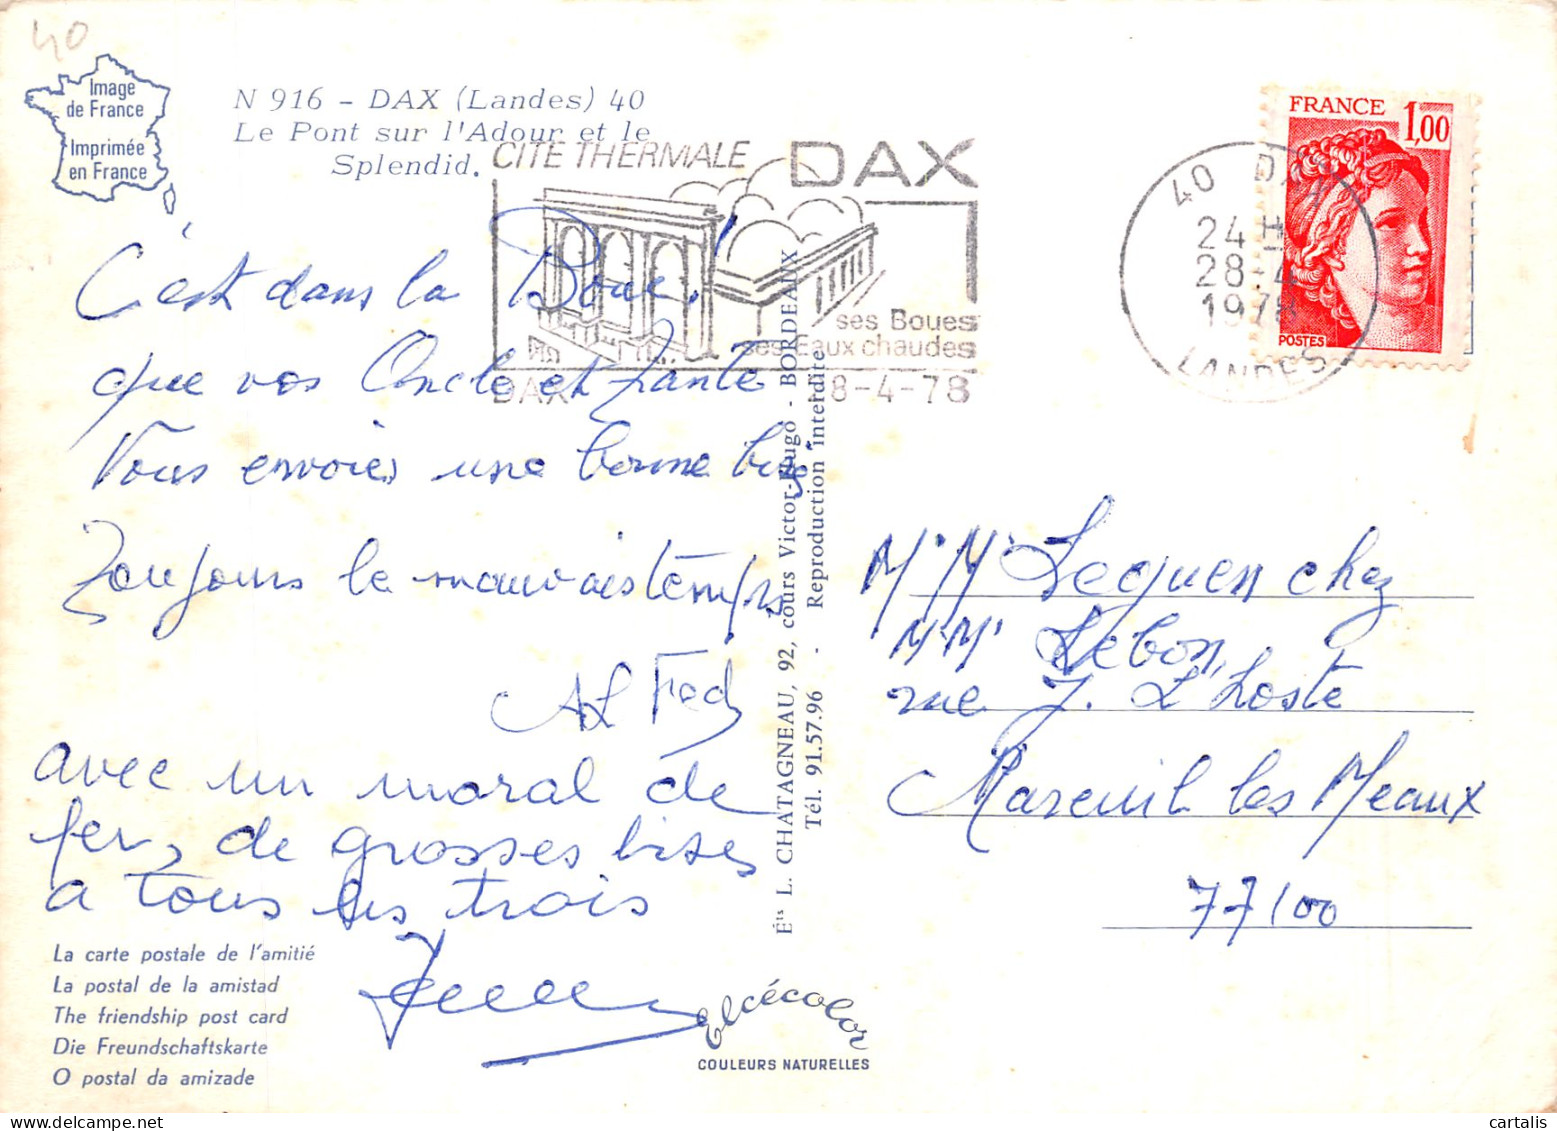 40
Image
de France
Imprimée
en France
N 916 - DAX (Landes) 40
Le Pont sur l'Adour et le
Splendid.
CITÉ THERMALE DAX
ses Boues
ses Eaux chaudes
DAX 28-4-78
40 DAX
24 H
28-4
1978
LANDES
FRANCE 1,00
POSTES
C'est dans la Boue!
que vos Oncle et Tante
Vous envoies une bonne bise
Toujours le mauvais temps
Fred
avec un moral de
fer, de grosses bises
a tous les trois
La carte postale de l'amitié
La postal de la amistad
The friendship post card
Die Freundschaftskarte
O postal da amizade
Éts L. CHATAGNEAU, 92, cours Victor-Hugo - BORDEAUX
Tél. 91.57.96 - Reproduction interdite
Elcécolor
COULEURS NATURELLES
Mr Me Leguen chez
Mr Me Lebon
rue J. L'Hoste
Mareuil les Meaux
77100
cartalis